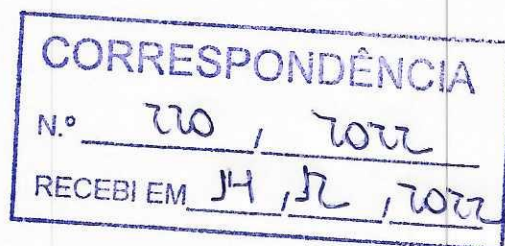 CORRESPONDÊNCIA
N.º 220 / 2022
RECEBI EM 14 / 12 / 2022